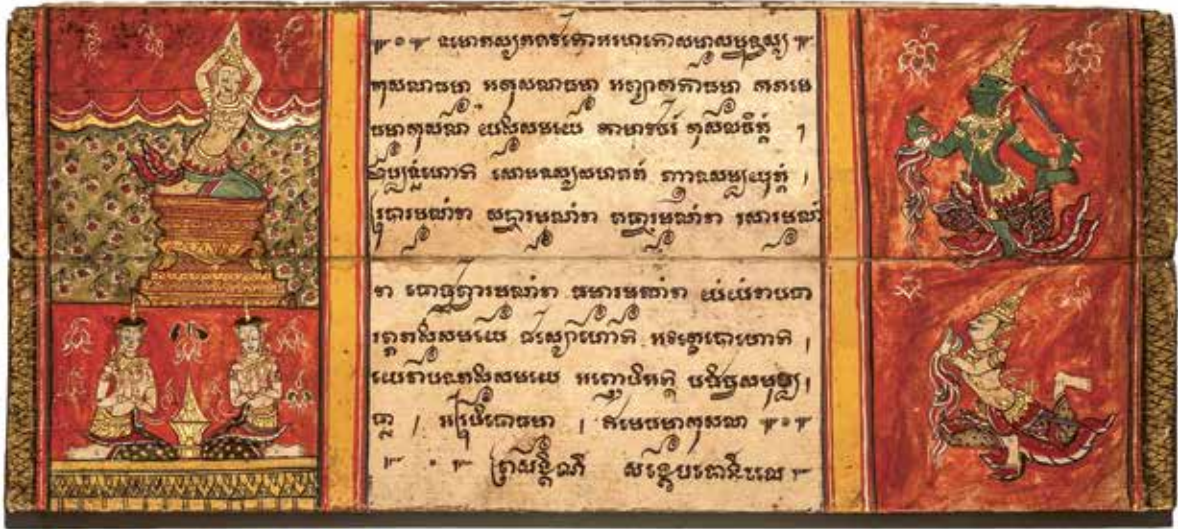 នមោតស្សភគវតោអរហតោសម្មាសម្ពុទ្ធស្ស
កុសលាធម្មា អកុសលាធម្មា អព្យាកតាធម្មា កតមេ
ធម្មាកុសលា យស្មឹសមយេ កាមាវចរំ កុសលចិត្តំ ។
ឧប្បន្នំហោតិ សោមនស្សសហគតំ ញាណសម្បយុត្តំ ។
រូបារម្មណំវា សទ្ទារម្មណំវា គន្ធារម្មណំវា រសារម្មណំ
វា ផោដ្ឋព្វារម្មណំវា ធម្មារម្មណំវា យំយំវាបនា
រព្ភតស្មឹសមយេ ផស្សោហោតិ អវិក្ខេបោហោតិ ។
យេវាបនតស្មឹសមយេ អញ្ញេបិអត្ថិ បដិច្ចសមុប្ប ។
ន្នា ។ អរូបិនោធម្មា ។ ឥមេធម្មាកុសលា
ព្រសង្គិណី